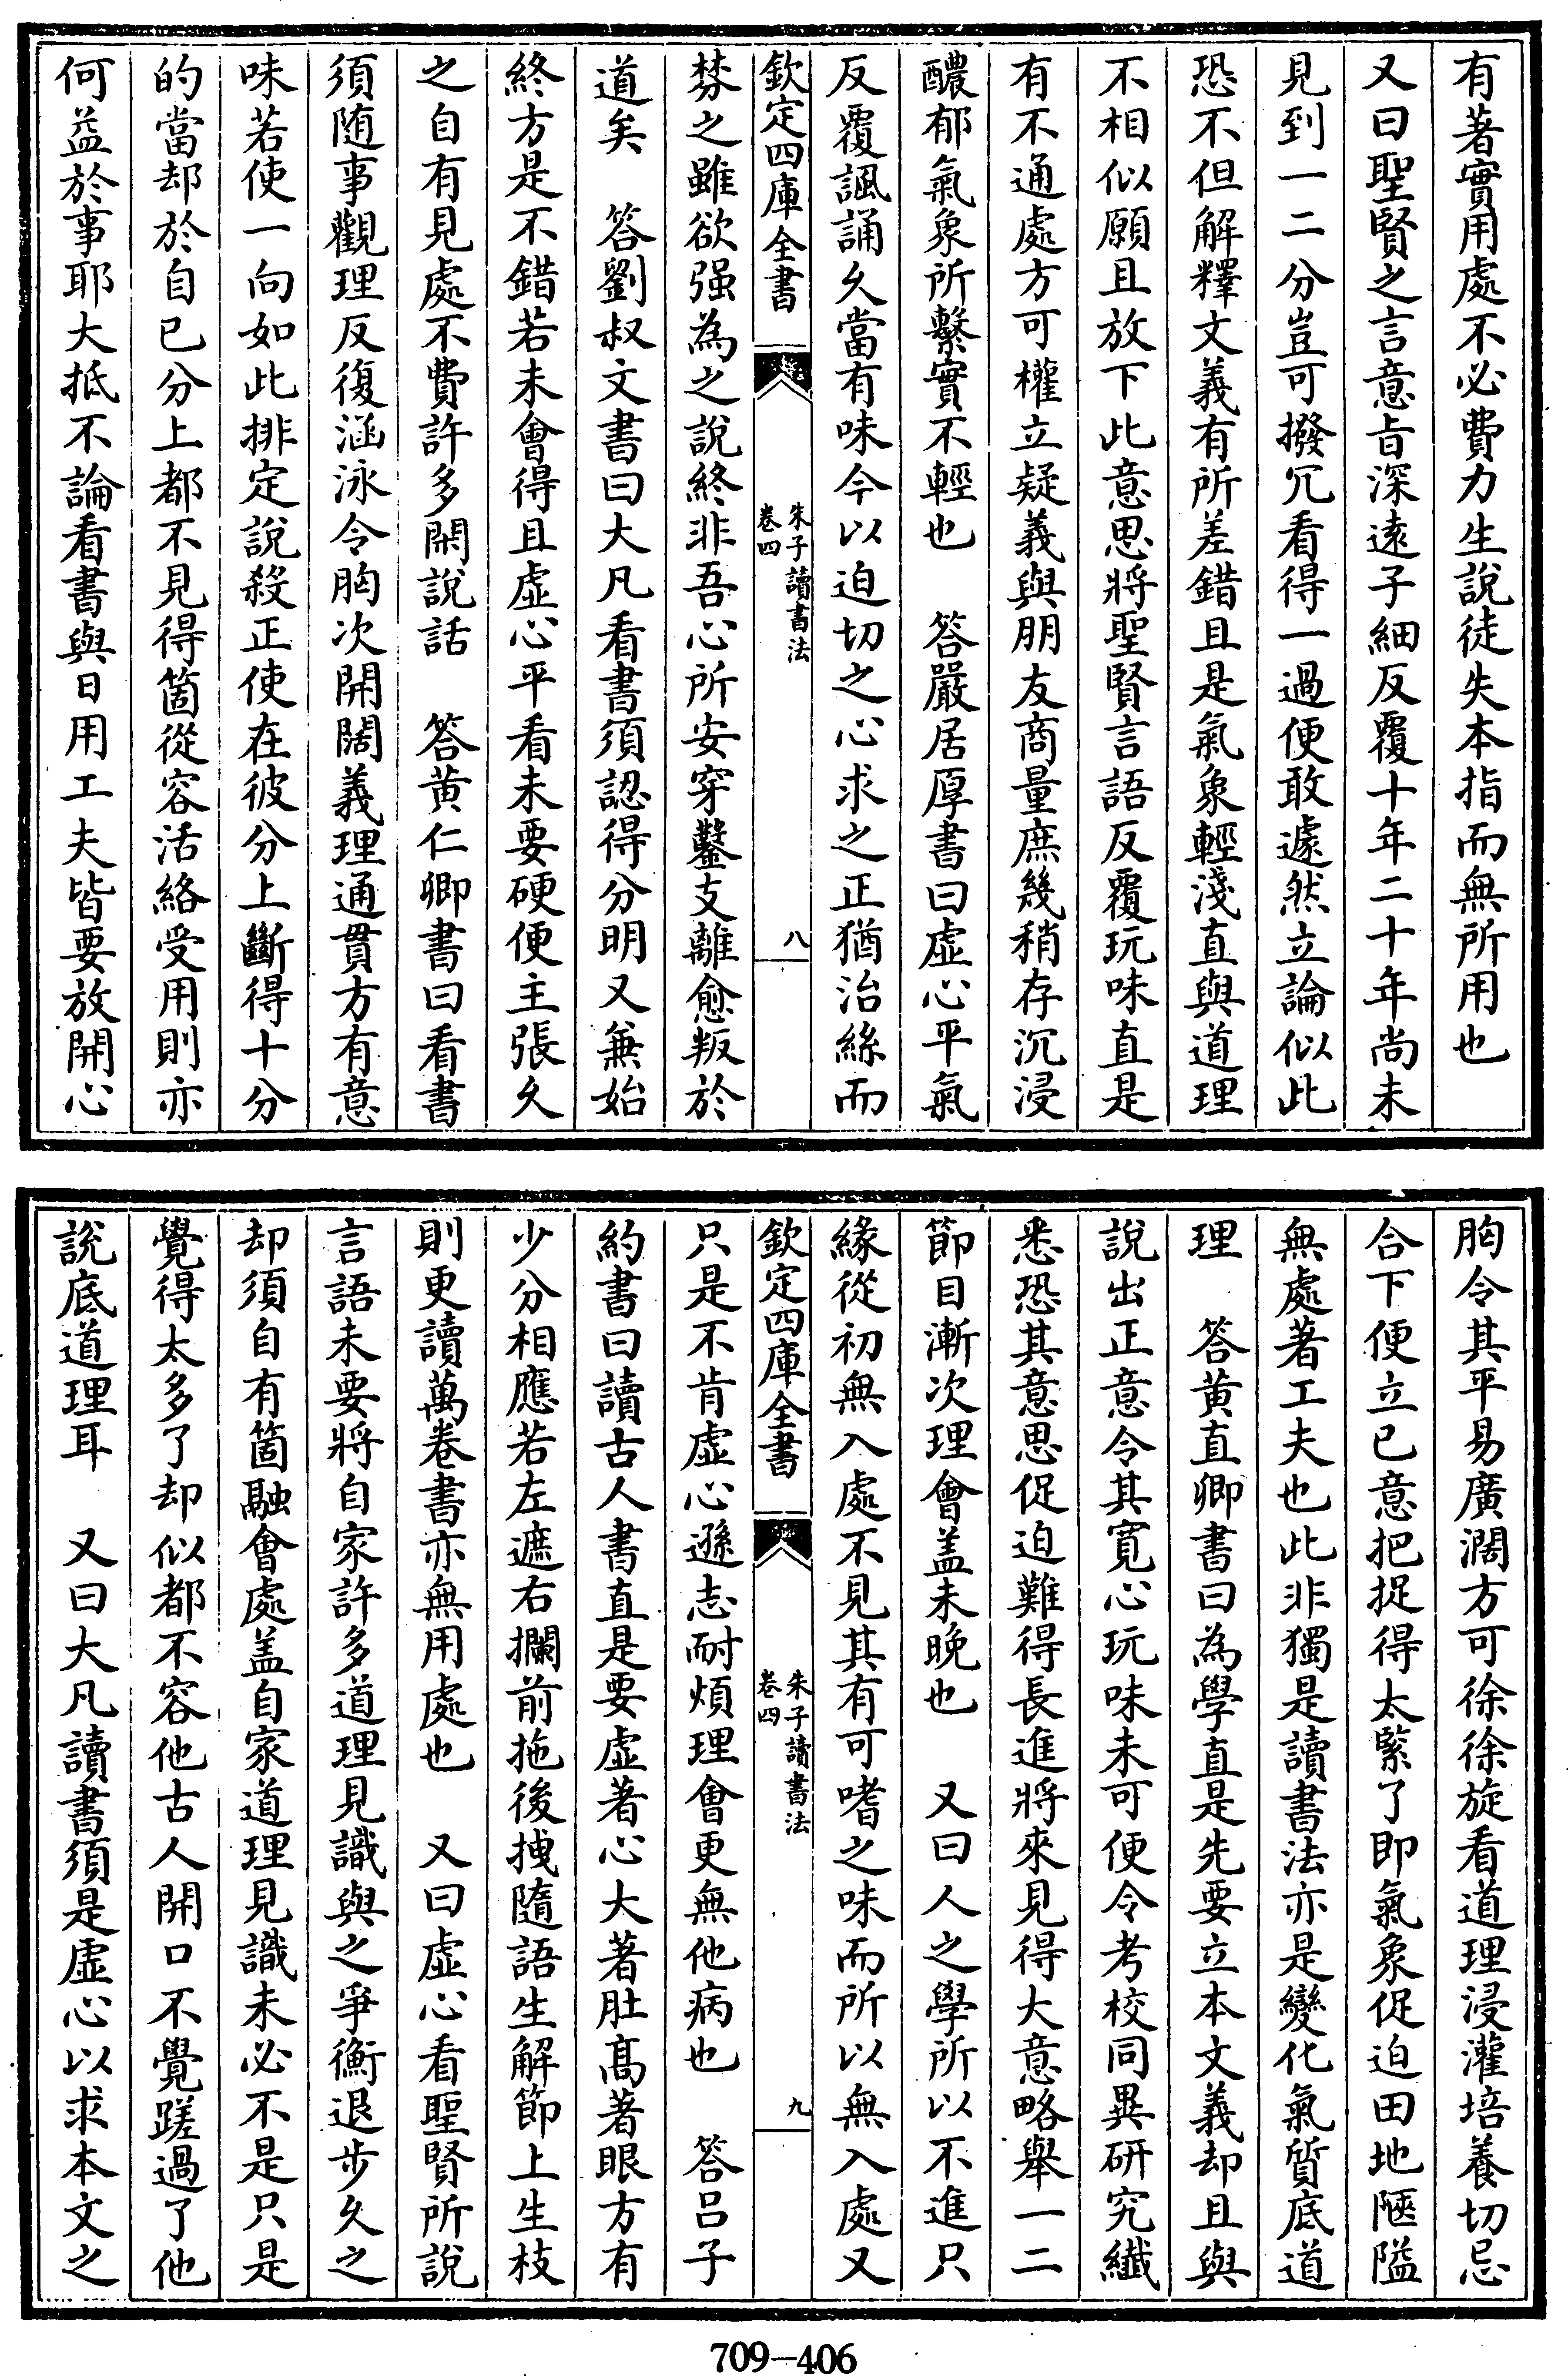 有著實用處不必費力生說徒失本指而無所用也
又曰聖賢之言意旨深遠子細反覆十年二十年尚未
見到一二分豈可撥冗看得一過便敢遽然立論似此
恐不但解釋文義有所差錯且是氣象輕淺直與道理
不相似願且放下此意思將聖賢言語反覆玩味直是
有不通處方可權立疑義與朋友商量庶幾稍存沉浸
醲郁氣象所繫實不輕也　答嚴居厚書曰虛心平氣
反覆諷誦久當有味今以迫切之心求之正猶治絲而
欽定四庫全書
朱子讀書法
卷四
八
棼之雖欲强為之說終非吾心所安穿鑿支離愈叛於
道矣　答劉叔文書曰大凡看書須認得分明又兼始
終方是不錯若未會得且虛心平看未要硬便主張久
之自有見處不費許多閑說話　答黄仁卿書曰看書
須随事觀理反復涵泳令胸次開闊義理通貫方有意
味若使一向如此排定說殺正使在彼分上斷得十分
的當却於自己分上都不見得箇從容活絡受用則亦
何益於事耶大抵不論看書與日用工夫皆要放開心
胸令其平易廣濶方可徐徐旋看道理浸灌培養切忌
合下便立已意把捉得太緊了即氣象促迫田地陿隘
無處著工夫也此非獨是讀書法亦是變化氣質底道
理　答黄直卿書曰為學直是先要立本文義却且與
說出正意令其寛心玩味未可便令考校同異研究纖
悉恐其意思促迫難得長進將來見得大意略舉一二
節目漸次理會盖未晚也　又曰人之學所以不進只
緣從初無入處不見其有可嗜之味而所以無入處又
欽定四庫全書
朱子讀書法
卷四
九
只是不肯虛心遜志耐煩理會更無他病也　答吕子
約書曰讀古人書直是要虛著心大著肚高著眼方有
少分相應若左遮右攔前拖後拽隨語生解節上生枝
則更讀萬卷書亦無用處也　又曰虛心看聖賢所說
言語未要將自家許多道理見識與之爭衡退步久之
却須自有箇融會處盖自家道理見識未必不是只是
覺得太多了却似都不容他古人開口不覺蹉過了他
說底道理耳　又曰大凡讀書須是虛心以求本文之
709-406